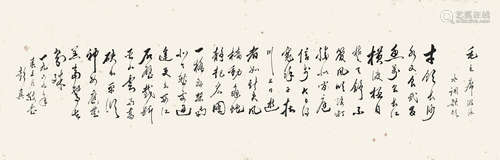 毛主席游泳
水调歌头
才饮长沙
水又食武昌
鱼万里长江
横渡极目
楚天舒不
管风吹浪打
胜似闲庭
信步今日得
宽余子在
川上曰逝
者如斯夫风
樯动龟蛇
静起宏图
一桥飞架南
北天堑变通
途更立西江
石壁截断
巫山云雨高
峡出平湖
神女应无
恙当惊世
界殊
一九六六年